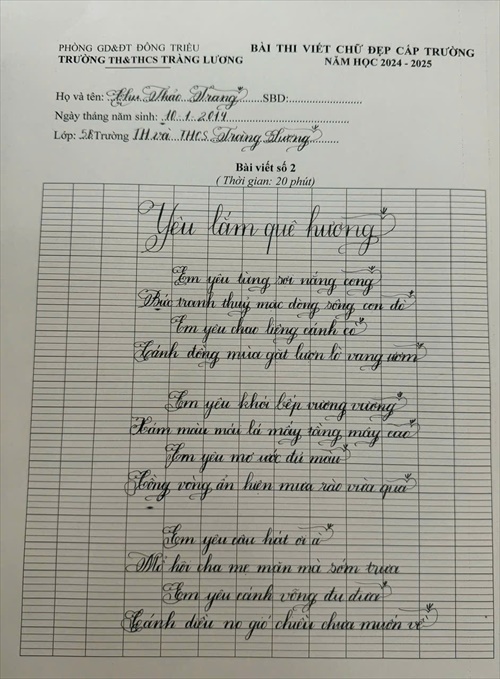 PHÒNG GD&ĐT ĐÔNG TRIỀU
TRƯỜNG TH&THCS TRÀNG LƯƠNG
BÀI THI VIẾT CHỮ ĐẸP CẤP TRƯỜNG
NĂM HỌC 2024 - 2025
Họ và tên: Chu Thảo Trang SBD:
Ngày tháng năm sinh: 10.1.2014
Lớp: 5B Trường TH và THCS Tràng Lương
Bài viết số 2
( Thời gian: 20 phút)
Yêu lắm quê hương
Em yêu từng sợi nắng cong
Bức tranh thuỷ mặc dòng sông con đò
Em yêu chao liệng cánh cò
Cánh đồng mùa gặt lượn lờ vàng ươm
Em yêu khói bếp vương vương
Xám màu mái lá mấy tầng mây cao
Em yêu mơ ước đủ màu
Cồng vồng ẩn hiện mưa rào vừa qua
Em yêu câu hát ơi à
Mồ hôi cha mẹ mặn mà sớm trưa
Em yêu cánh võng đu đưa
Cánh diều no gió chiều chưa muốn về